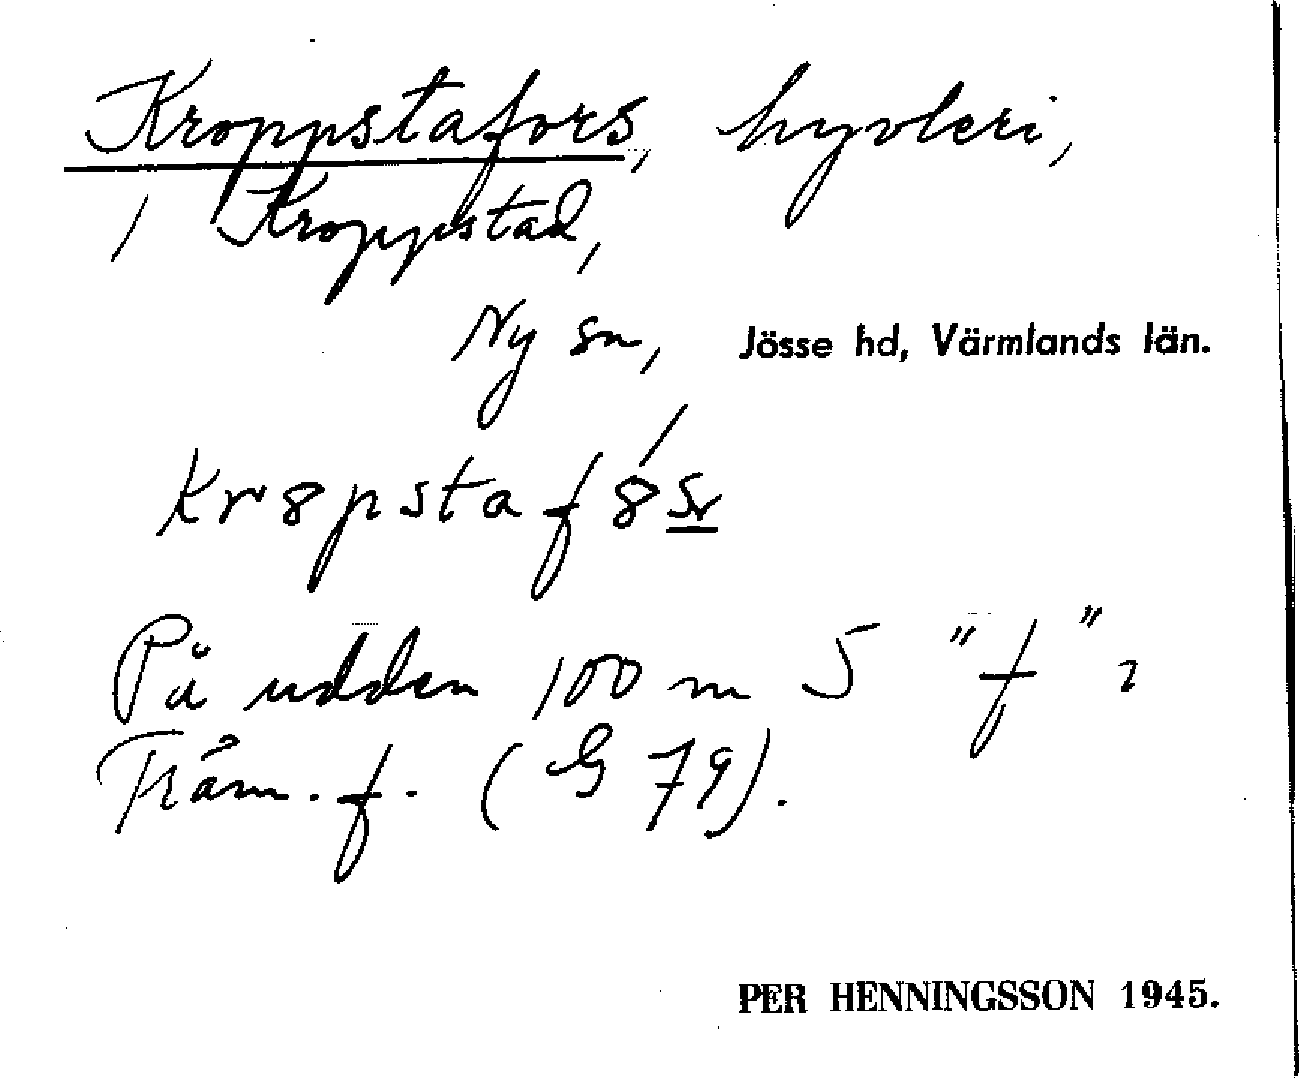 Kroppstafors, hyvleri,
i Kroppstad,
Ny sn, Jösse hd, Värmlands län.
Kr8psta f8́sr
På udden 100 m S "f" i
Träm. f. (G 79).
PER HENNINGSSON 1945.